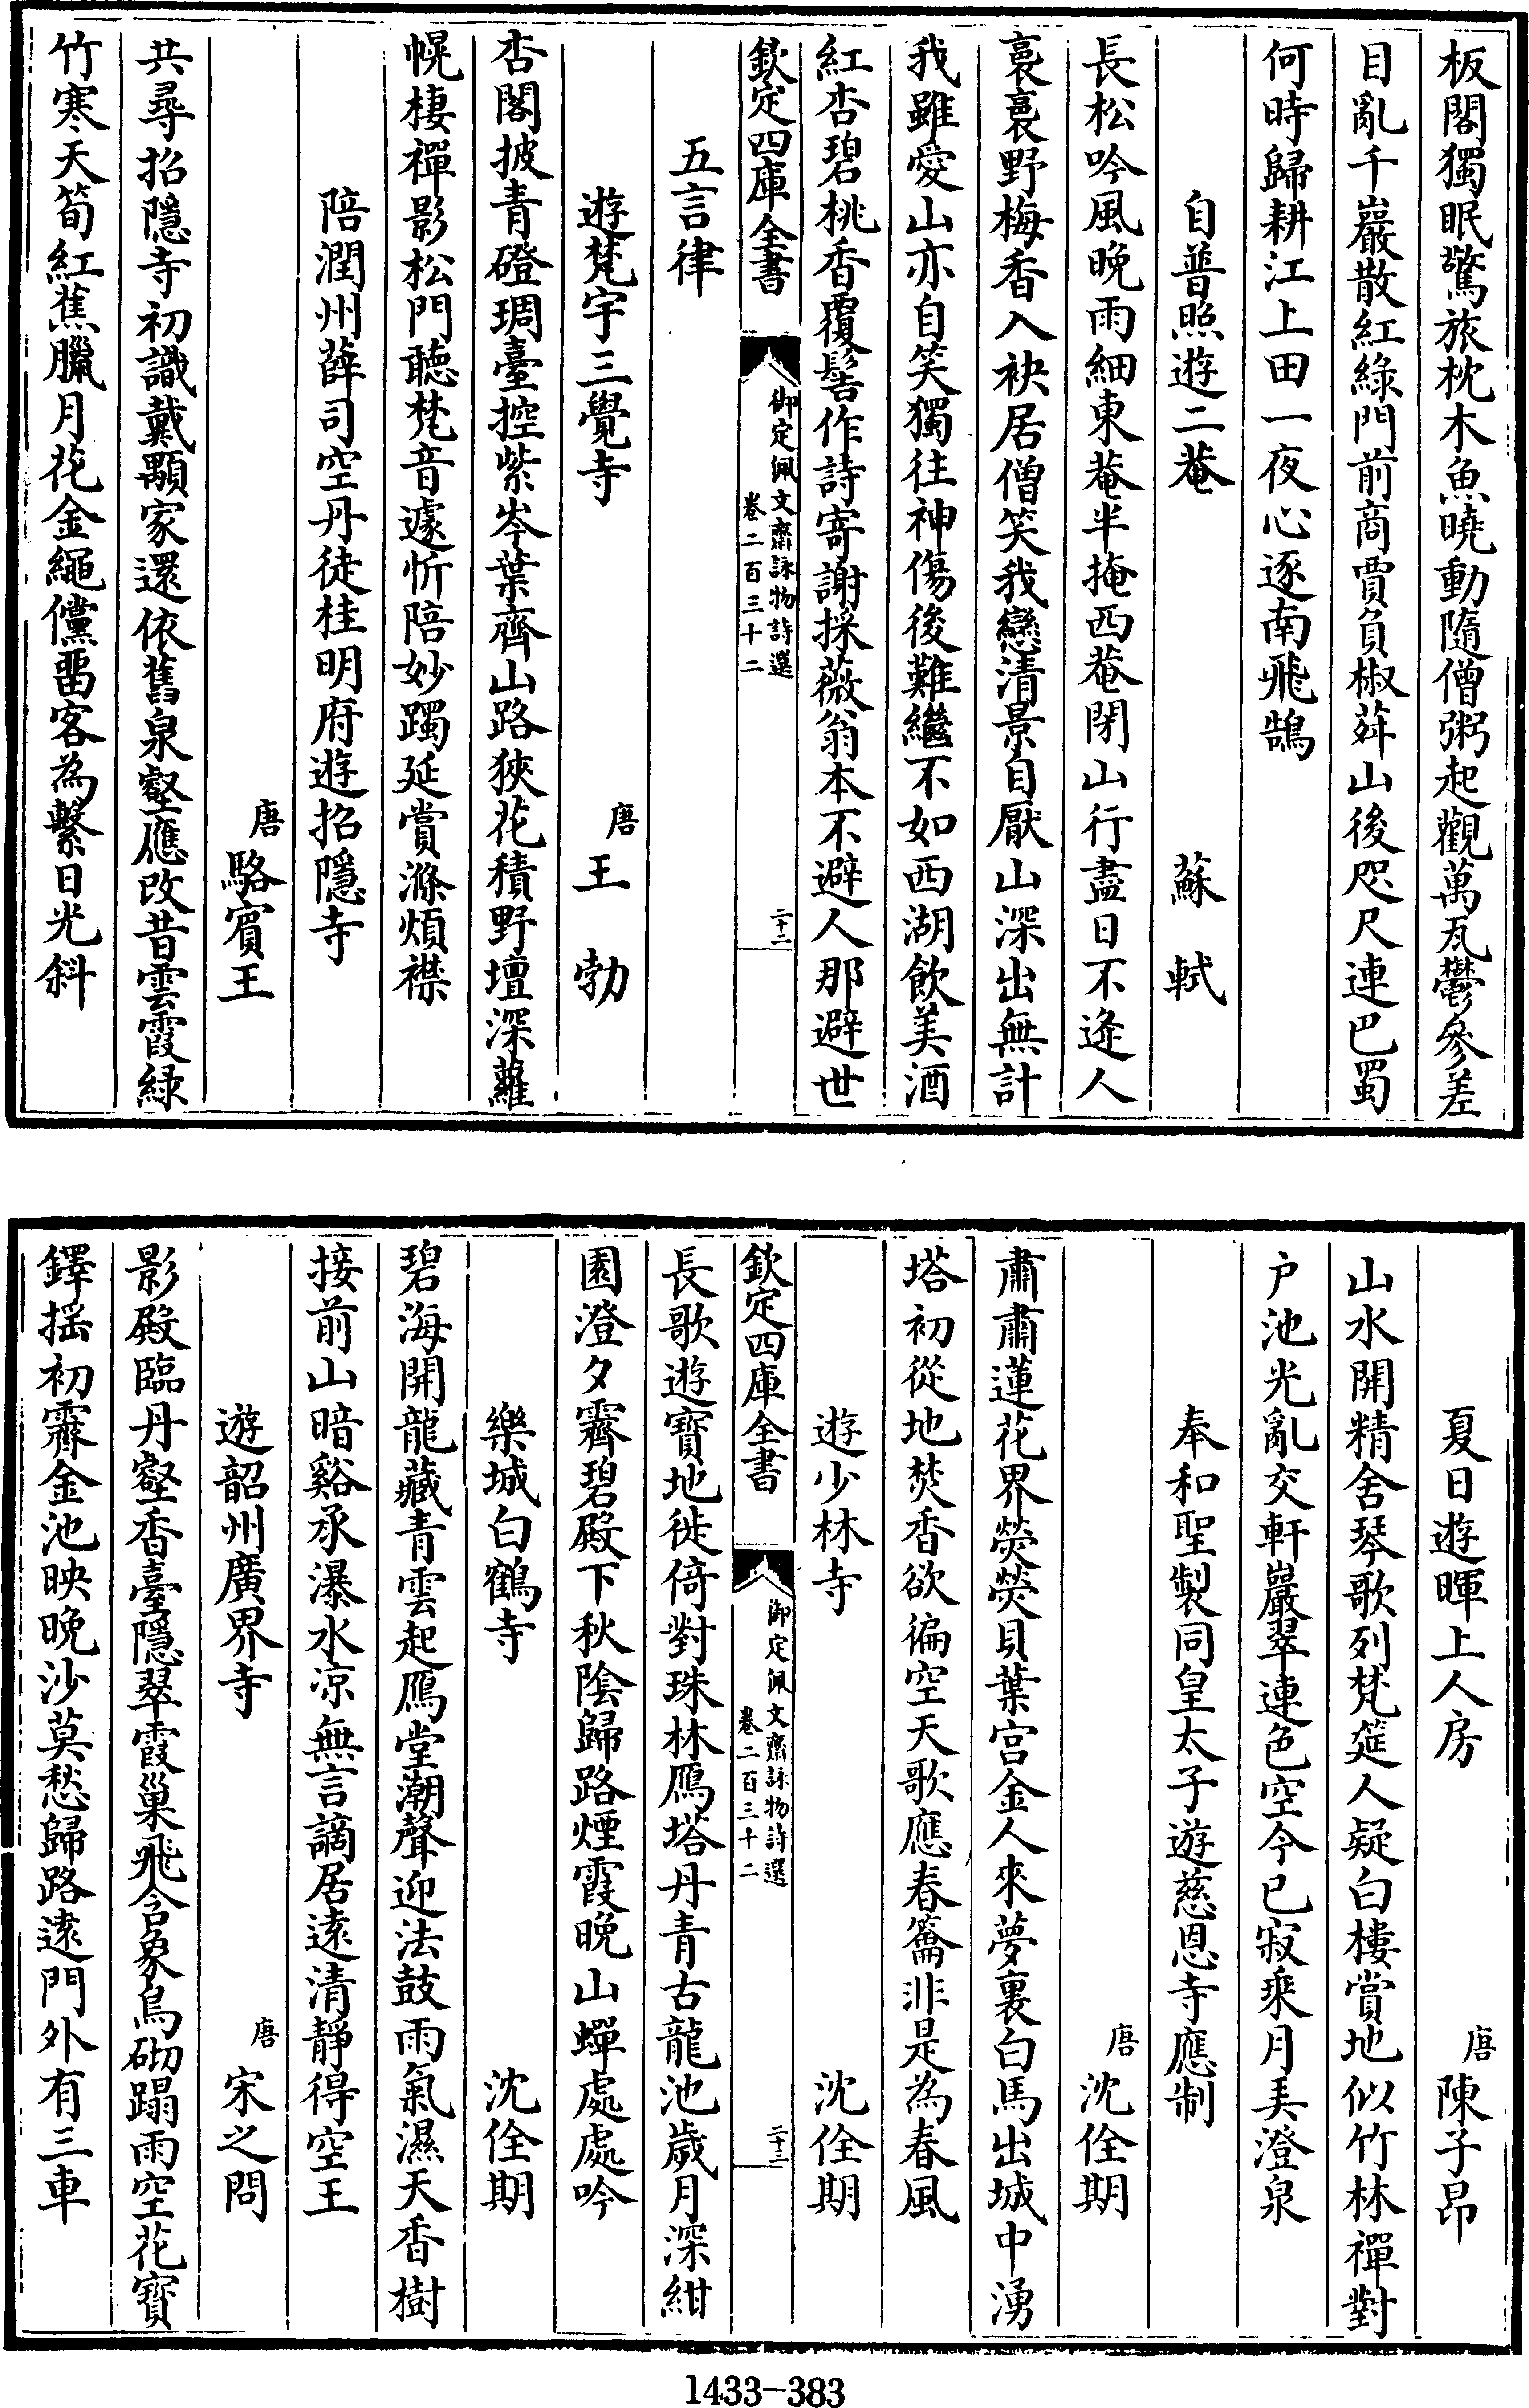 板閣獨眠驚旅枕木魚曉動隨僧粥起觀萬瓦鬱參差
目亂千巖散紅綠門前商賈負椒荈山後咫尺連巴蜀
何時歸耕江上田一夜心逐南飛鵠
自普照遊二菴 蘇軾
長松吟風晚雨細東菴半掩西菴閉山行盡日不逢人
裛裛野梅香入袂居僧笑我戀清景自厭山深出無計
我雖愛山亦自笑獨往神傷後難繼不如西湖飲美酒
紅杏碧桃香覆髻作詩寄謝採薇翁本不避人那避世
欽定四庫全書 御定佩文齋詠物詩選 卷二百三十二 二十二
五言律
遊梵宇三覺寺 唐王勃
杏閣披青磴琱臺控紫岑葉齊山路狹花積野壇深蘿
幌棲禪影松門聽梵音遽忻陪妙躅延賞滌煩襟
陪潤州薛司空丹徒桂明府遊招隱寺
唐駱賓王
共尋招隱寺初識戴顒家還依舊泉壑應改昔雲霞綠
竹寒天筍紅蕉臘月花金繩儻畱客為繫日光斜
夏日遊暉上人房 唐陳子昂
山水開精舍琴歌列梵筵人疑白樓賞地似竹林禪對
户池光亂交軒巖翠連色空今已寂乘月弄澄泉
奉和聖製同皇太子遊慈恩寺應制
唐沈佺期
肅肅蓮花界熒熒貝葉宮金人來夢裏白馬出城中湧
塔初從地焚香欲徧空天歌應春籥非是為春風
遊少林寺 沈佺期
欽定四庫全書 御定佩文齋詠物詩選 卷二百三十二 二十三
長歌遊寳地徙倚對珠林鴈塔丹青古龍池歲月深紺
園澄夕霽碧殿下秋陰歸路煙霞晚山蟬處處吟
樂城白鶴寺 沈佺期
碧海開龍藏青雲起鴈堂潮聲迎法鼓雨氣濕天香樹
接前山暗谿承瀑水凉無言謫居遠清靜得空王
遊韶州廣界寺 唐宋之問
影殿臨丹壑香臺隱翠霞巢飛含象鳥砌蹋雨空花寳
鐸搖初霽金池映晚沙莫愁歸路遠門外有三車
1433-383